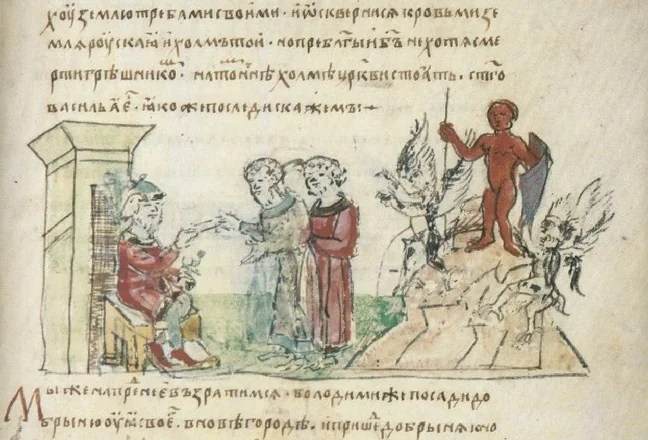 хоу землю требами своими · и ѡсквернися кровьми зе
мля роускаꙗ и холмъ той · но пребл҃гыи б҃ъ не хотя сме
рти грѣшникоⷨ · на тоⷨ нн҃ѣ холмѣ цр҃кви стоать · ст҃го
васильа еⷭ · ꙗкоже последи скажемъ :
Мы же на преⷣнее възратимся · володимиже посади до
брыню оуꙗ своеⷢ · в новѣгородѣ · и пришеⷣ добрынꙗ к но